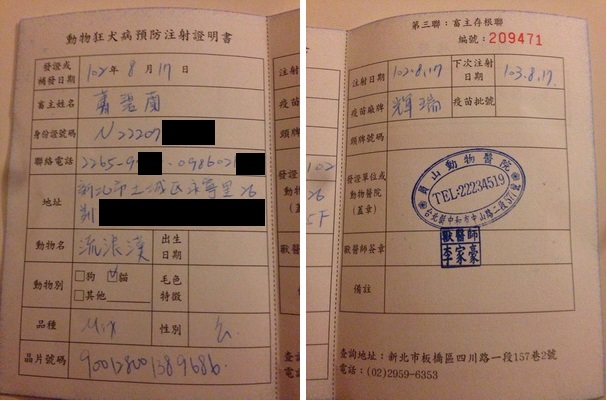 動物狂犬病預防注射證明書
發證或補發日期 102年 8月17日
畜主姓名
身份證號碼 N22209
聯絡電話 2265-9 、098602
地址 新北市土城區永寧里26
動物名 流浪漢 出生日期
動物別 □狗 ☑貓 □其他 毛色特徵
品種 Mix 性別 公
晶片號碼 900128001389686
第三聯：畜主存根聯
編號：209471
注射日期 102.8.17 下次注射日期 103.8.17
疫苗廠牌 輝瑞 疫苗批號
頸牌號碼
發證單位或動物醫院(蓋章)
員山動物醫院
TEL:22234519
台北縣中和市中山路二段57號
獸醫師簽章
獸醫師
李家豪
備註
查詢地址：新北市板橋區四川路一段157巷2號
電話：(02)2959-6353